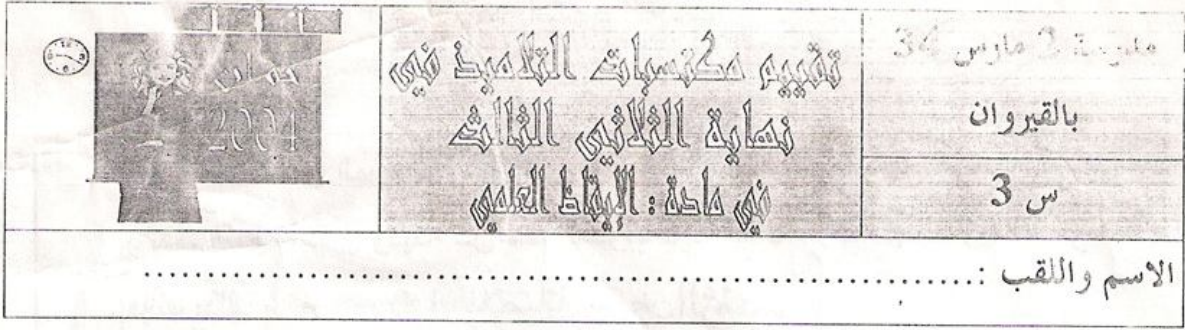 مدرسة 2 مارس 34
بالقيروان
س 3
تقييم مكتسبات التلاميذ في
نهاية الثلاثي الثالث
في مادة : الإيقاظ العلمي
جوان
2004
الاسم واللقب :................................................................